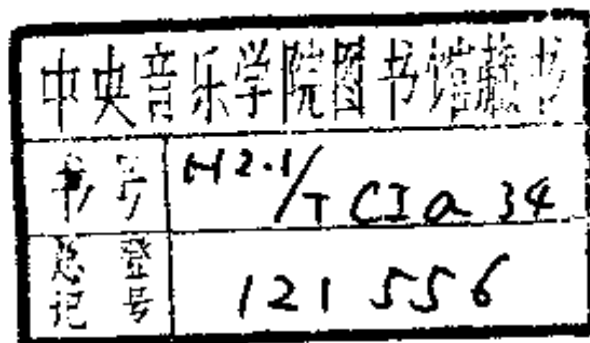 中央音乐学院图书馆藏书
书号 H2.1/T CI a 34
总登记号 121556